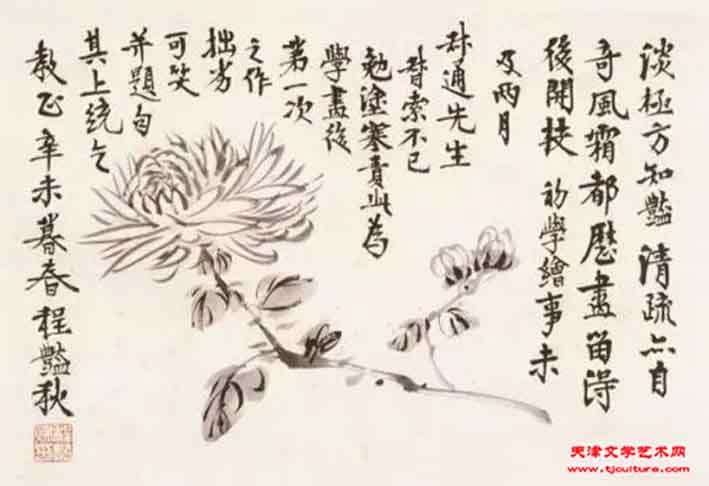 淡極方知豔 清疏亦自
奇風霜都歷盡留得
後開枝 初學繪事未
及兩月
叔通先生
督索不已
勉塗塞責此為
學畫後
第一次
之作
拙劣
可笑
并題句
其上統乞
教正辛未暮春程豔秋
天津文学艺术网
www.tjculture.com